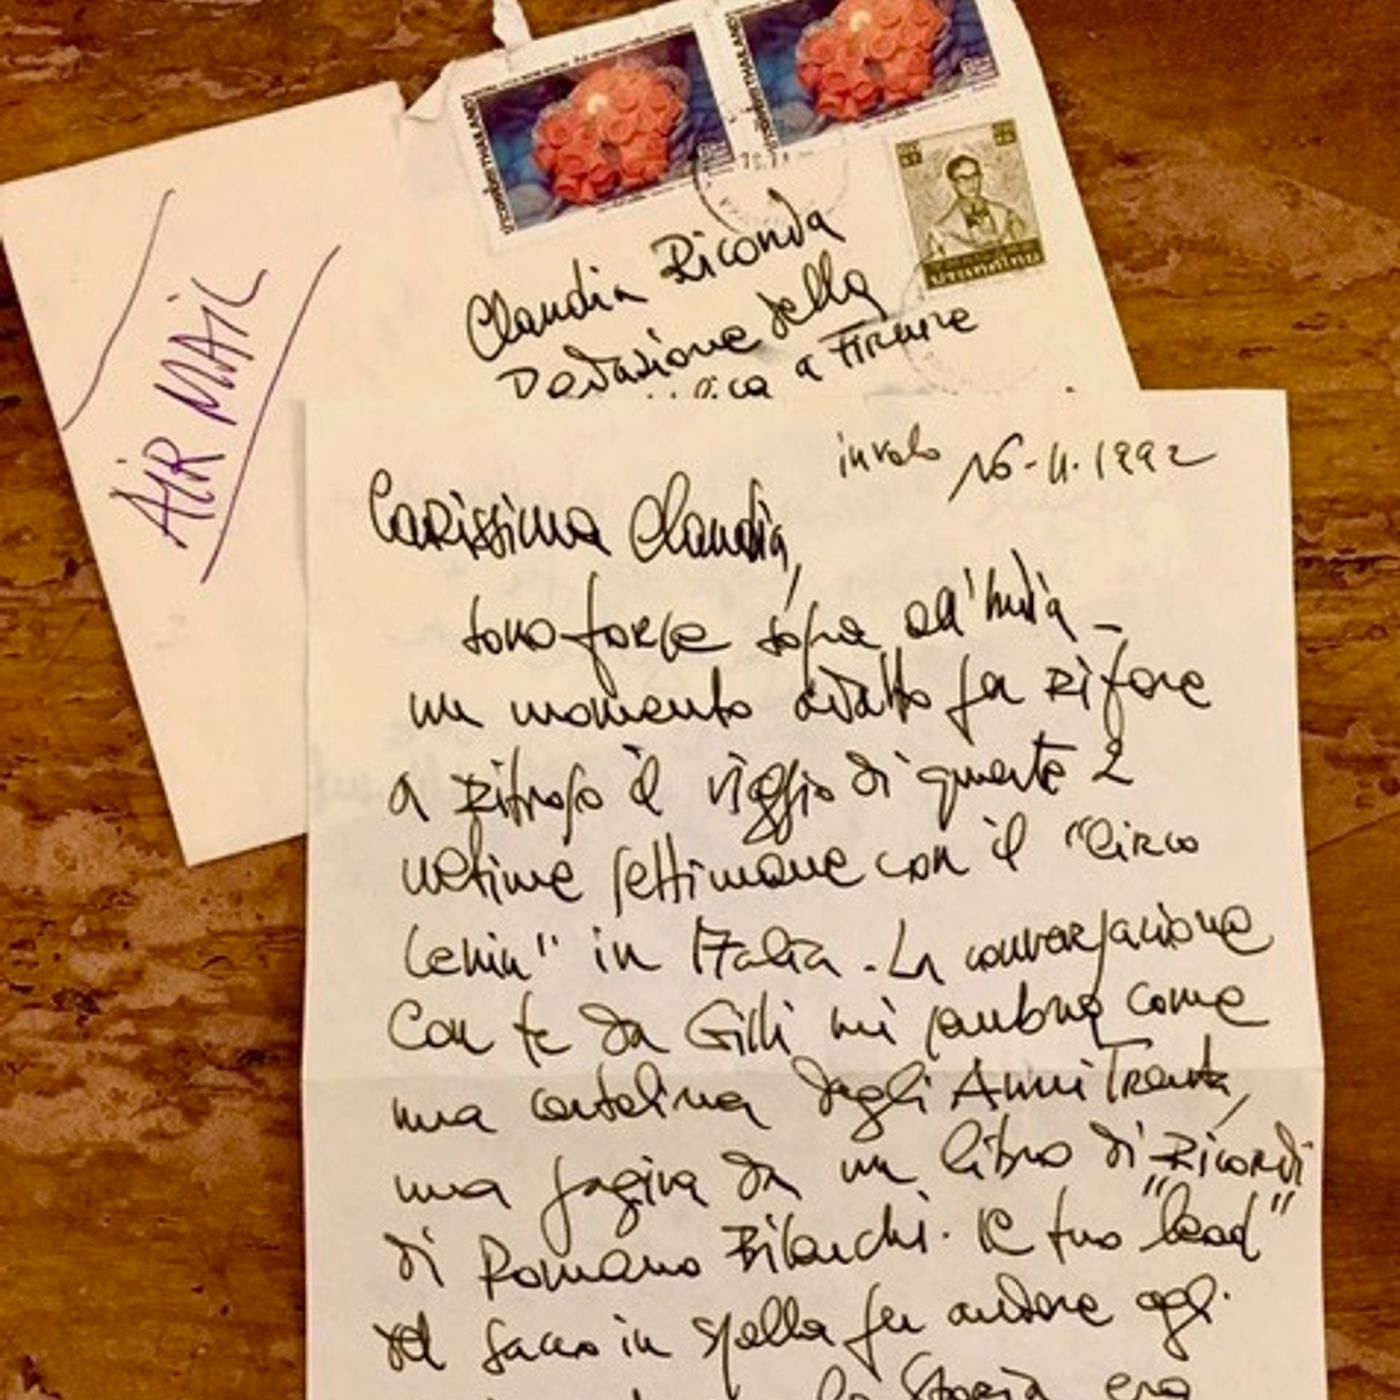 THAILAND
THAILAND
AIR MAIL
Claudia Riconda
Redazione della
a Firenze
in volo 16-11-1992
Carissima Claudia,
sono forse sopra all'India -
un momento adatto per rifare
a ritroso il viaggio di queste 2
ultime settimane con il "Circo
Lenin" in Italia. La conversazione
con te da Gilli mi sembra come
una cartolina degli Anni Trenta,
una pagina da un libro di Ricordi
di Romano Bilenchi. Il tuo "lead"
sul sacco in spalla per andare agli
la Storia era